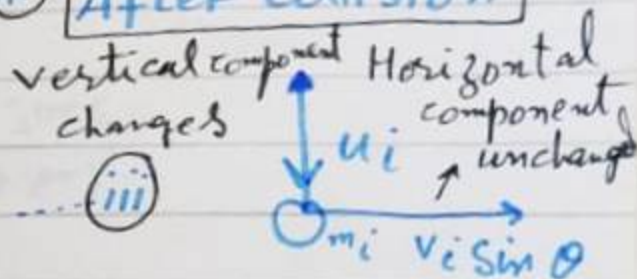 After collision
vertical component
changes
Horizontal
component
unchanged
iii
ui
mi vi Sin θ